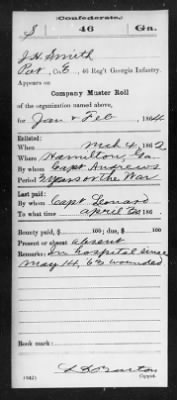 Confederate.
S 46 Ga.
J H Smith
Pvt, Co. E, 46 Reg't Georgia Infantry.
Appears on
Company Muster Roll
of the organization named above,
for Jan & Feb, 1864
Enlisted:
When Mch 4, 1862
Where Hamilton, Ga
By whom Capt Andrews
Period 3 years or the War
Last paid:
By whom Capt Leonard
To what time April 30 186 .
Bounty paid, $ 100; due, $ 100
Present or absent absent
Remarks: In hospital since
May 14, 63 wounded
Book mark:
(642)
Copyist.